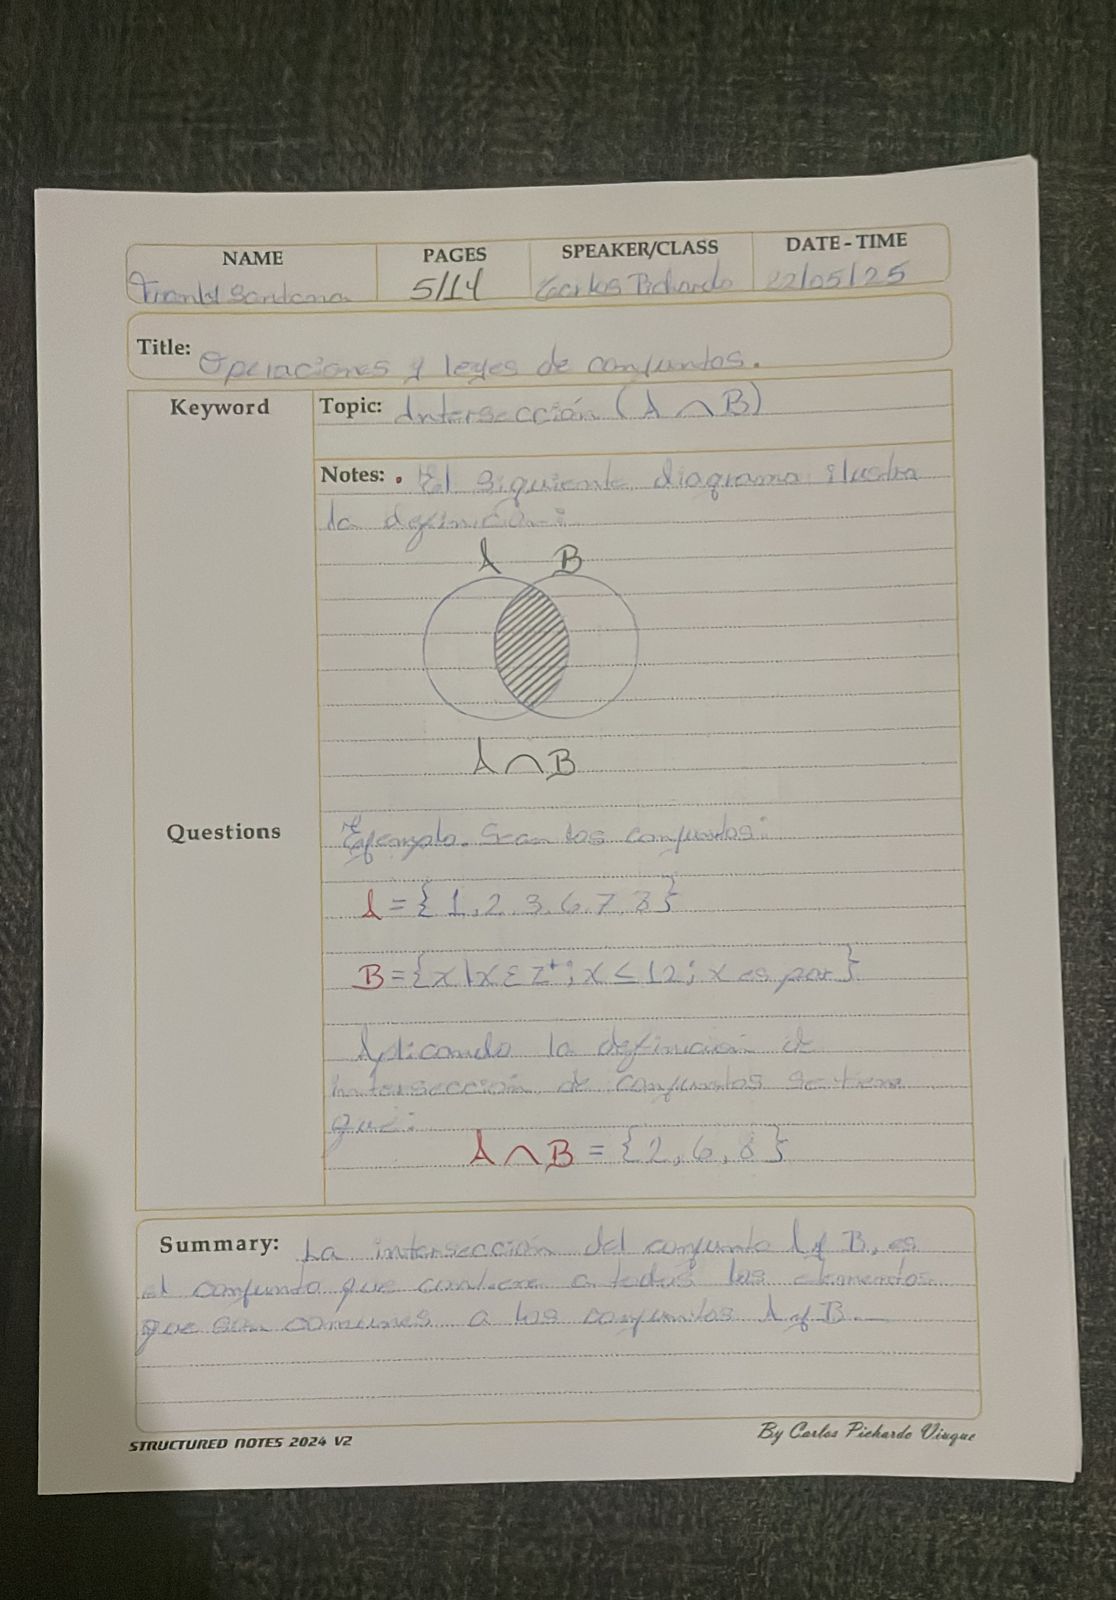 NAME PAGES SPEAKER/CLASS DATE-TIME
Frankl Santana 5/14 Carlos Pichardo 22/05/25
Title: Operaciones y leyes de conjuntos.
Keyword
Topic: Intersección (A ∩ B)
Notes: • El siguiente diagrama ilustra
la definición:
A B
A ∩ B
Questions
Ejemplo. Sean los conjuntos:
A = {1, 2, 3, 6, 7, 8}
B = {x | x ∈ Z⁺; x ≤ 12; x es par}
Aplicando la definición de
intersección de conjuntos se tiene
que:
A ∩ B = {2, 6, 8}
Summary: La intersección del conjunto A y B, es
el conjunto que contiene a todos los elementos
que son comunes a los conjuntos A y B.
STRUCTURED NOTES 2024 V2
By Carlos Pichardo Viuque